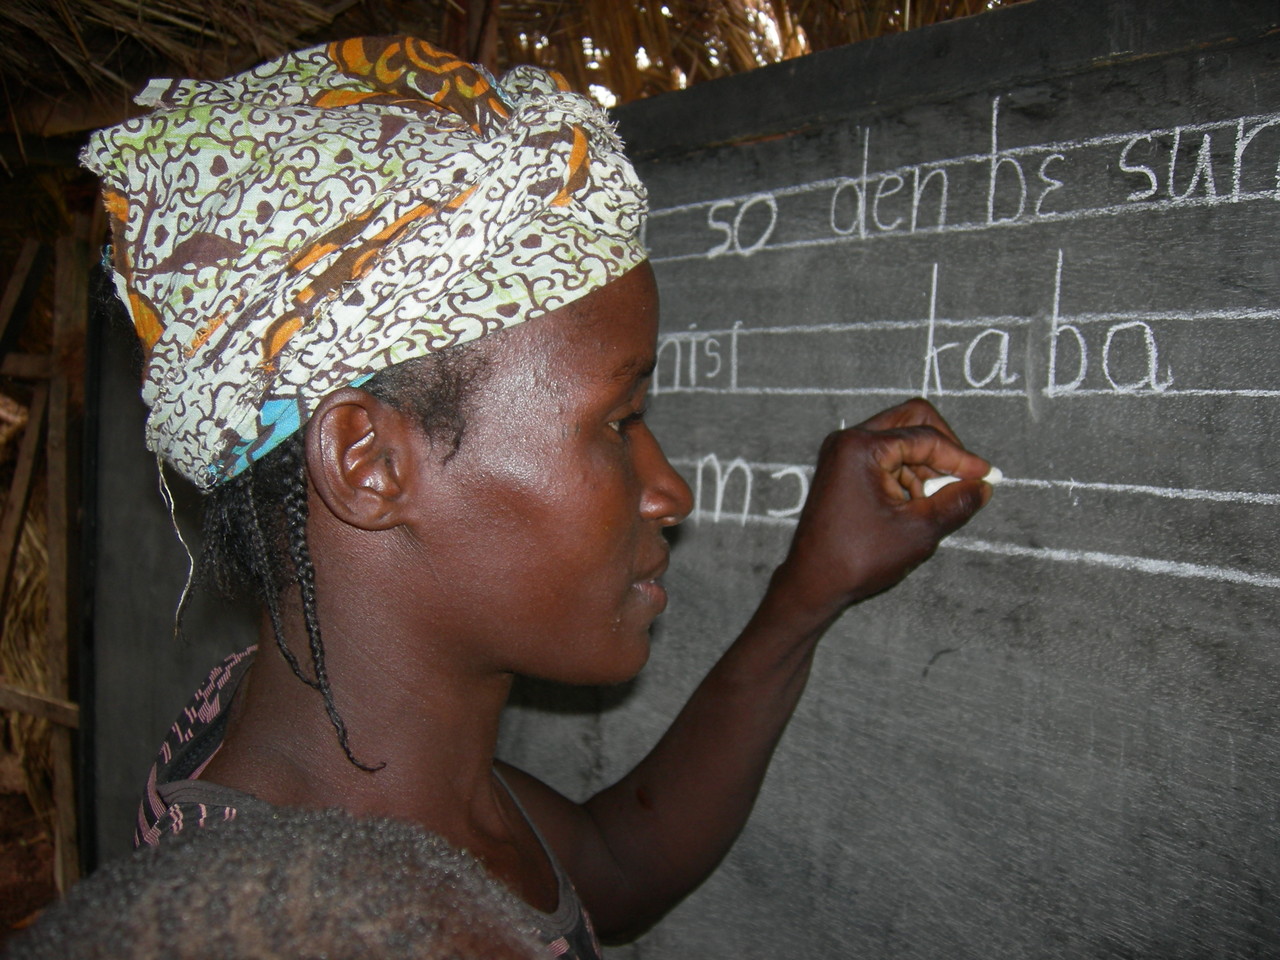 so den bɛ sur
nisi kaba
mɔ